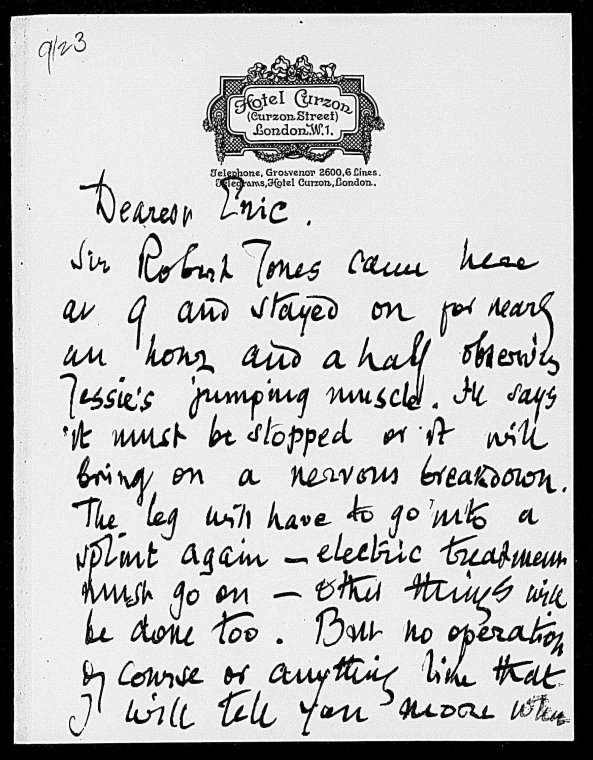 9/23
Hotel Curzon
(Curzon Street)
London W.1.
Telephone, Grosvenor 2600, 6 Lines.
Telegrams, Hotel Curzon, London.
Dearest Eric.
Sir Robert Jones came here
at 9 and stayed on for nearly
an hour and a half observing
Jessie's jumping muscle. He says
it must be stopped or it will
bring on a nervous breakdown.
The leg will have to go into a
splint again — electric treatment
must go on — other things will
be done too. But no operation
of course or anything like that
I will tell you more when